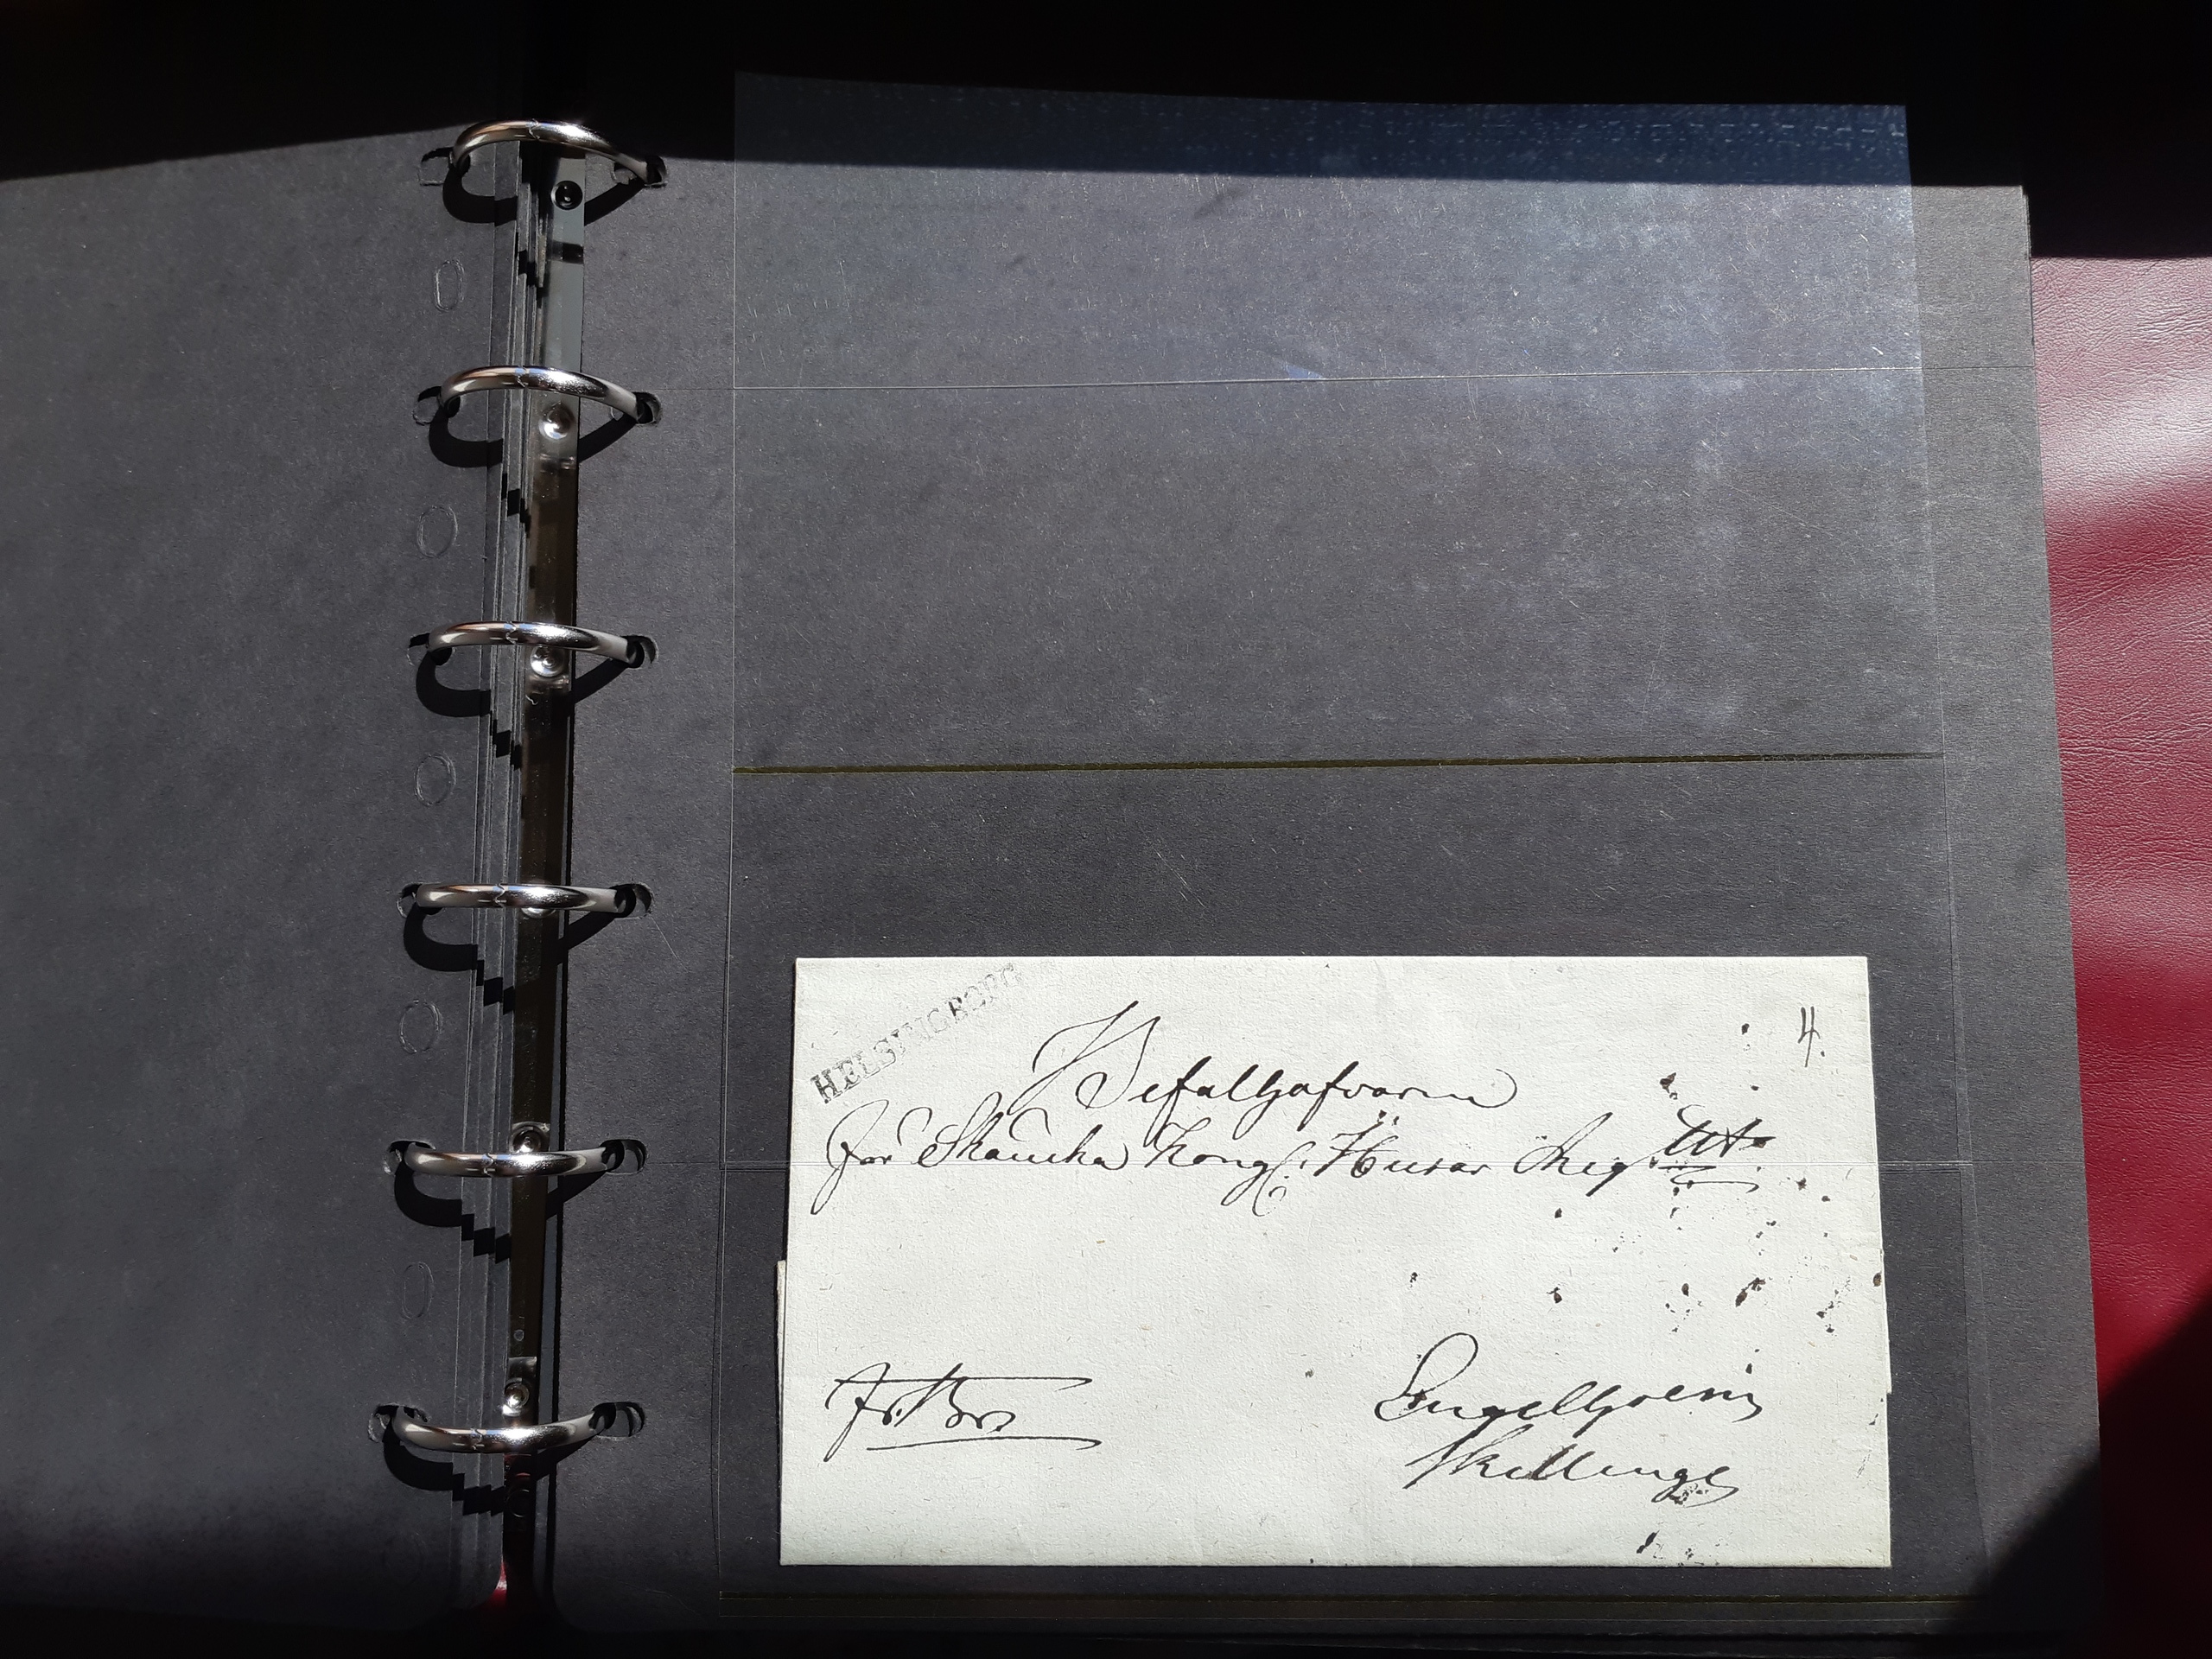 HELSINGBORG
4.
Befälhafvaren
för Skånska Kongl: Husar Reg:tet
Fr. Bref
Engelholm
Skillinge